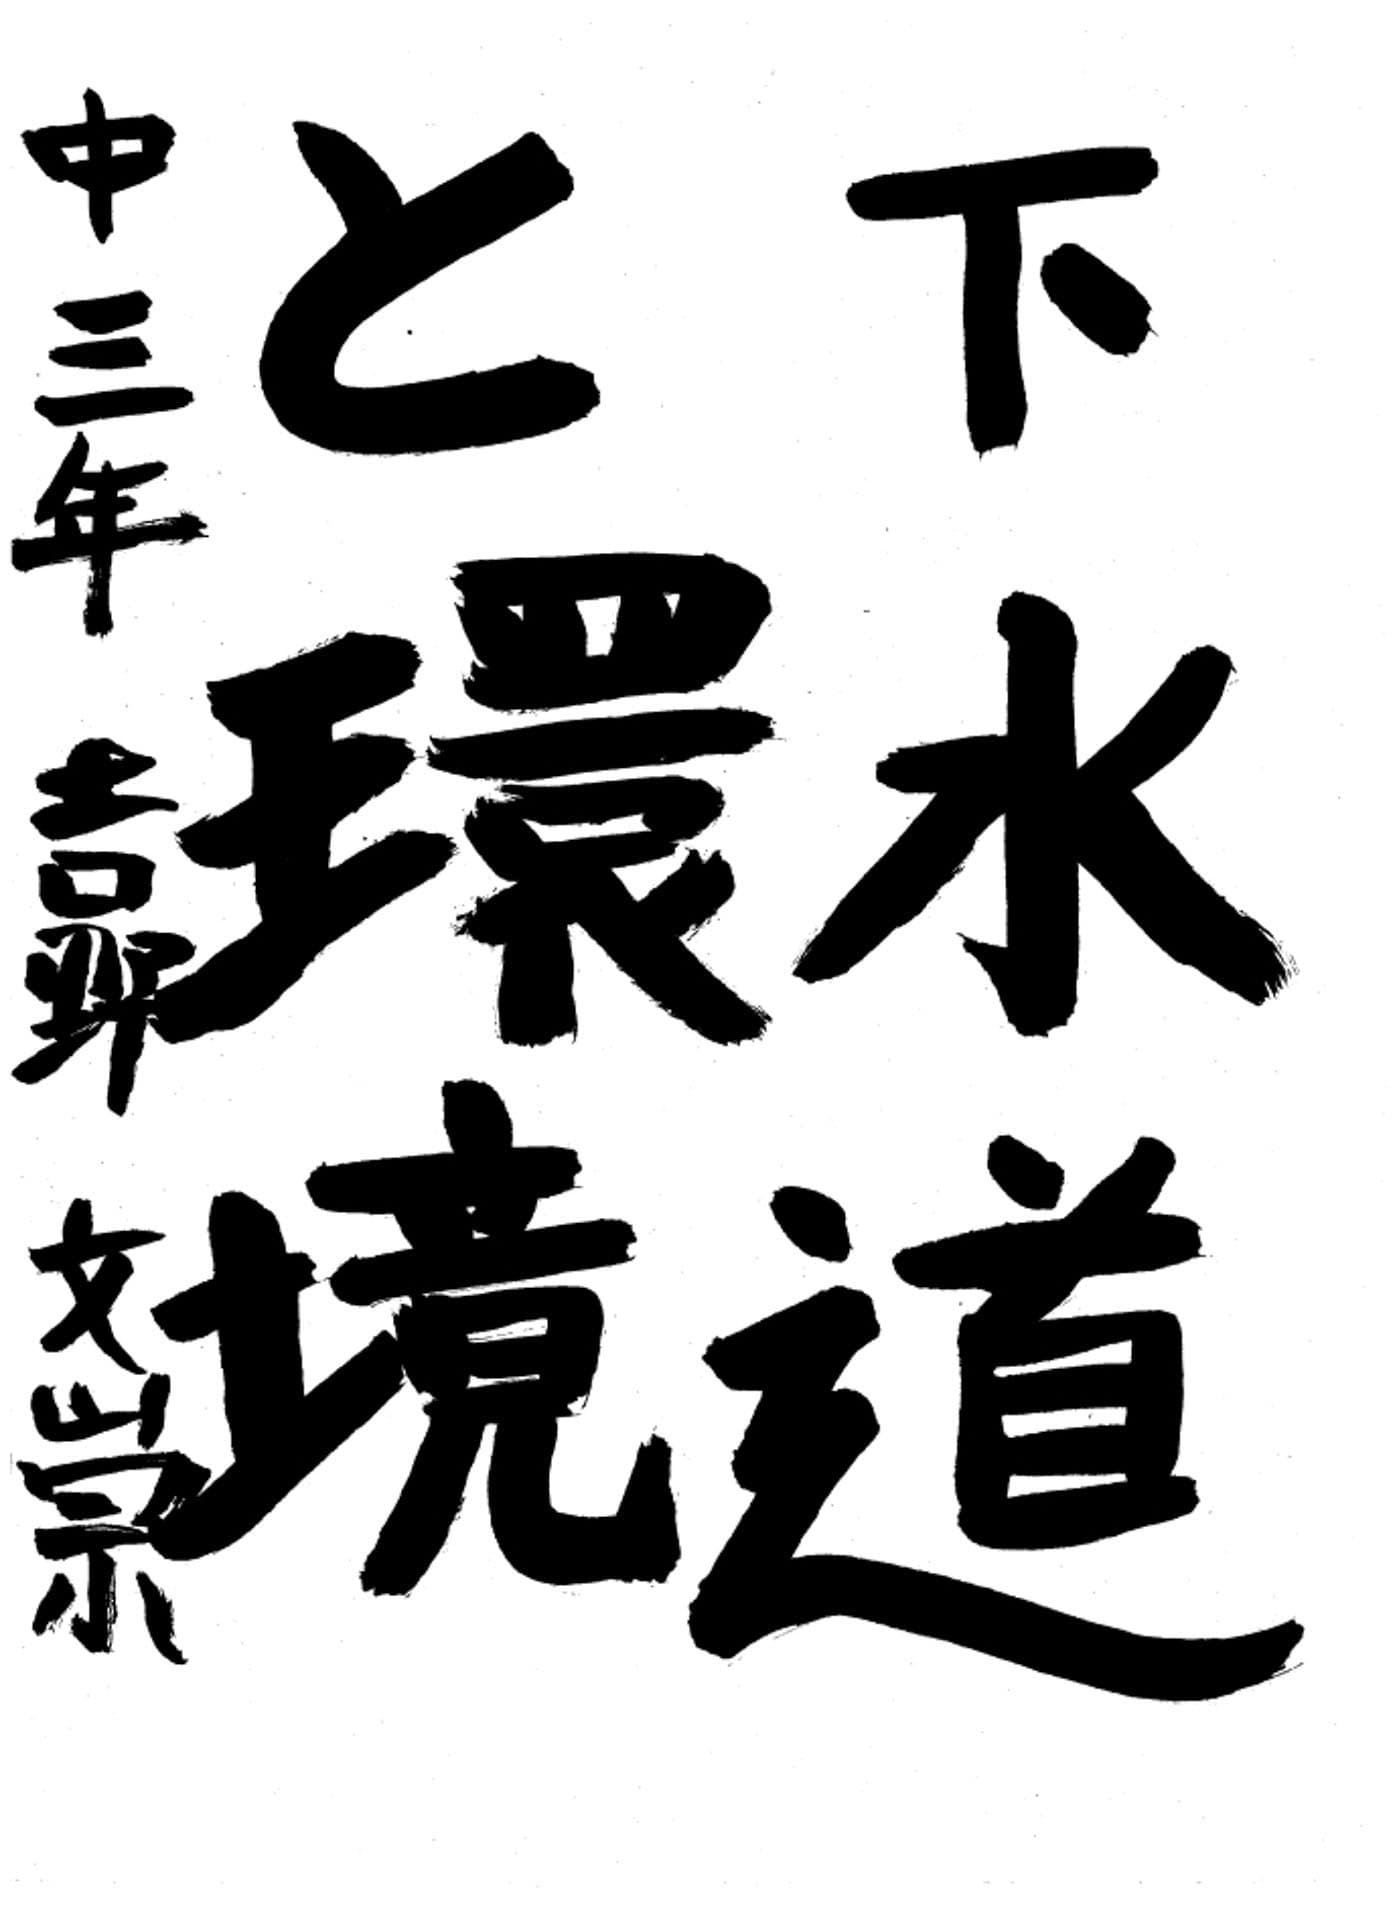 下水道
と環境
中三年 吉野 文崇